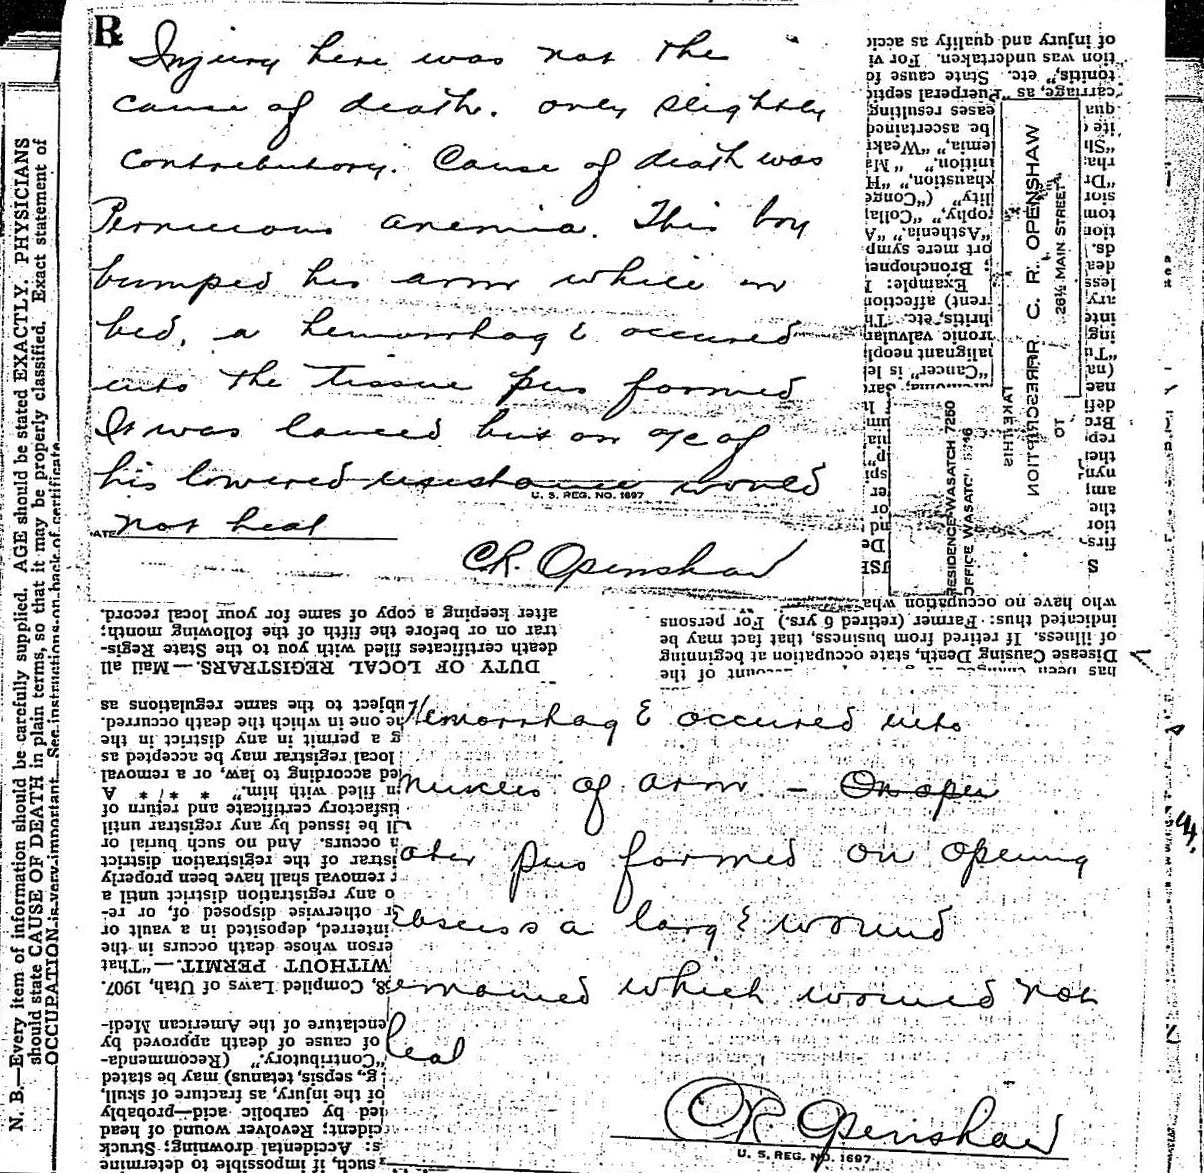 N. B.—Every item of information should be carefully supplied. AGE should be stated EXACTLY. PHYSICIANS
should state CAUSE OF DEATH in plain terms, so that it may be properly classified. Exact statement of
OCCUPATION is very important. See instructions on back of certificate.
Rx
Injury here was not the
cause of death. only slightly
contributory. Cause of death was
Pernicious anemia. This boy
bumped his arm while in
bed, a hemorrhage occured
into the tissue pus formed
It was lanced but on a/c of
his lowered resistance would
U. S. REG. NO. 1697
not heal
C.R. Openshaw
of injury and qualify as acci
tion was undertaken. For vi
tonitis," etc. State cause fo
carriage, as "Puerperal septic
eases resulting
be ascertained
emia," "Weak
nition," "Ma
khaustion," "H
lity" ("Conge
ophy," "Colla
"Asthenia," "A
ort mere symp
: Bronchopne
Example:
rent) affection
hritis, etc. Th
ronic valvular
alignant neopl
"Cancer" is le
TAKE THIS
PRESCRIPTION
TO
C. R. OPENSHAW
26½ MAIN STREET
RESIDENCE WASATCH 7250
OFFICE WASATCH
who have no occupation wha
indicated thus: Farmer (retired 6 yrs.) For persons
of illness. If retired from business, that fact may be
Disease Causing Death, state occupation at beginning
has been account of the
after keeping a copy of same for your local record.
trar on or before the fifth of the following month;
death certificates filed with you to the State Regis-
DUTY OF LOCAL REGISTRARS.—Mail all
ubject to the same regulations as
he one in which the death occurred.
g a permit in any district in the
local registrar may be accepted as
ed according to law, or a removal
in filed with him." * * * A
tisfactory certificate and return of
ll be issued by any registrar until
a occurs. And no such burial or
istrar of the registration district
r removal shall have been properly
o any registration district until a
r otherwise disposed of, or re-
interred, deposited in a vault or
erson whose death occurs in the
WITHOUT PERMIT.—"That
8, Compiled Laws of Utah, 1907.
enclature of the American Medi-
of cause of death approved by
"Contributory." (Recommenda-
g., sepsis, tetanus) may be stated
of the injury, as fracture of skull,
ied by carbolic acid—probably
cident; Revolver wound of head
s: Accidental drowning; Struck
such, if impossible to determine
Hemorrhage occured into
muscles of arm - On open
ater pus formed on opening
abscess a large wound
emained which would not
heal
CR Openshaw
U. S. REG. NO. 1697